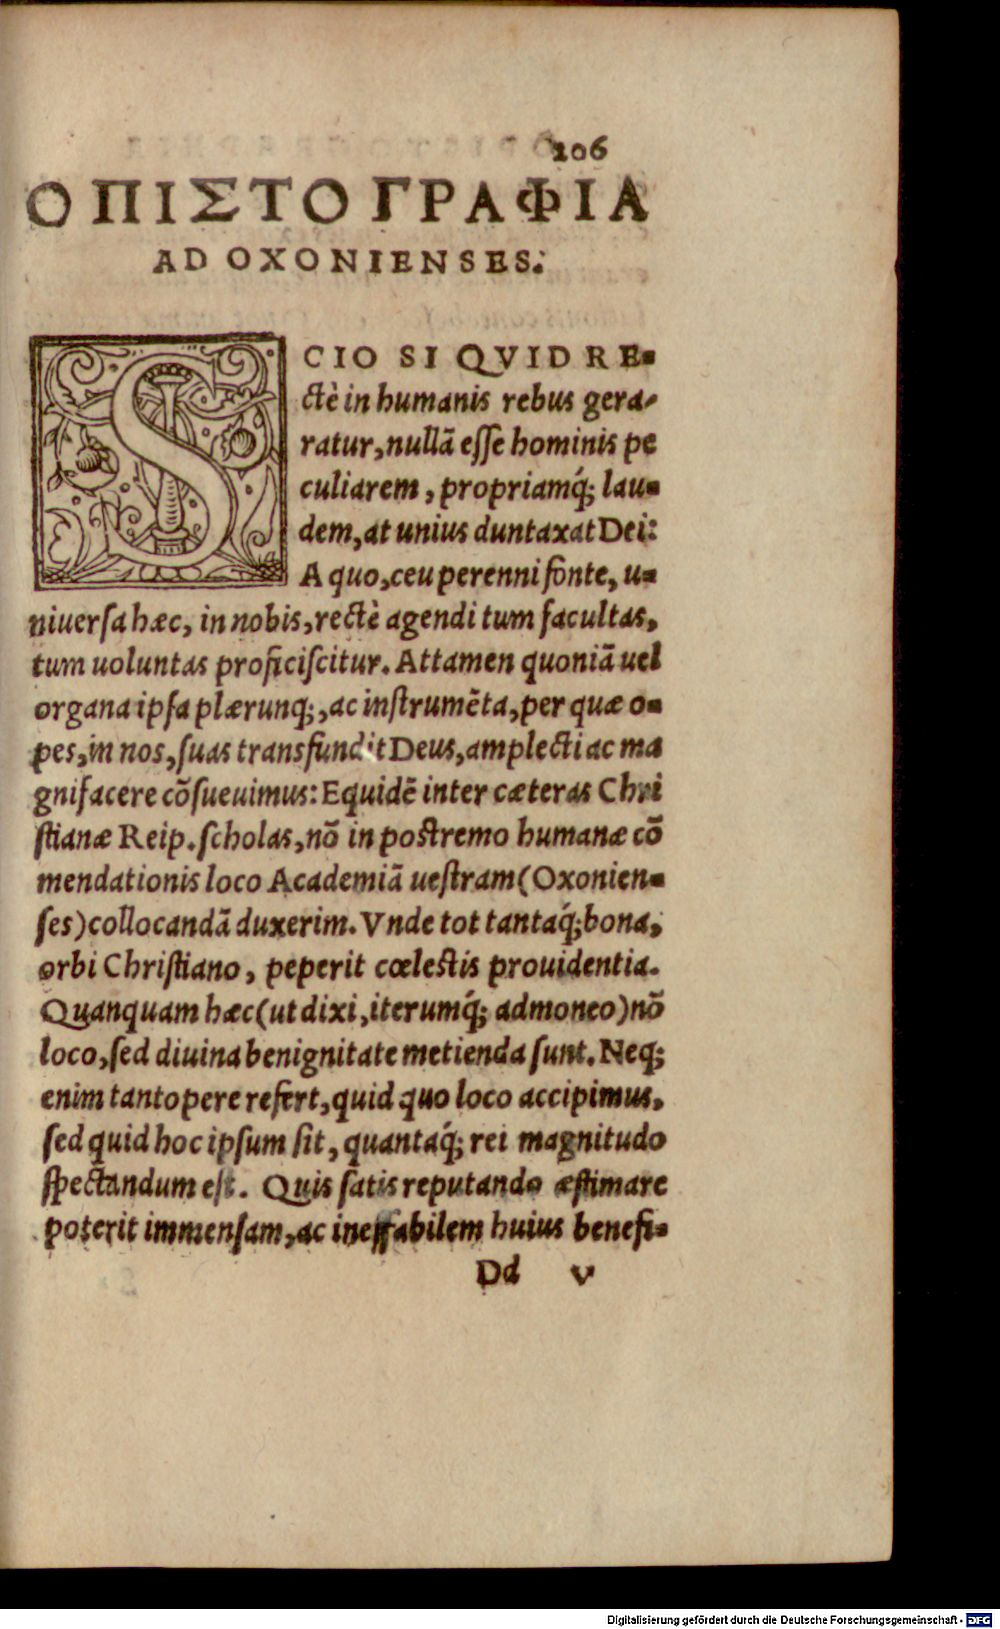 206
ΟΠΙΣΤΟΓΡΑΦΙΑ
AD OXONIENSES.
SCIO SI QVID RE-
ctè in humanis rebus gera-
ratur, nullā esse hominis pe
culiarem, propriamq́; lau-
dem, at unius duntaxat Dei:
A quo, ceu perenni fonte, u-
niuersa hæc, in nobis, rectè agendi tum facultas,
tum uoluntas proficiscitur. Attamen quoniā uel
organa ipsa plærunq;, ac instrumēta, per quæ o-
pes, in nos, suas transfundit Deus, amplecti ac ma
gnifacere cōsueuimus: Equidē inter cæteras Chri
stianæ Reip. scholas, nō in postremo humanæ cō
mendationis loco Academiā uestram (Oxonien-
ses) collocandā duxerim. Vnde tot tantaq́; bona,
orbi Christiano, peperit cœlestis prouidentia.
Quanquam hæc (ut dixi, iterumq́; admoneo) nō
loco, sed diuina benignitate metienda sunt. Neq;
enim tantopere refert, quid quo loco accipimus,
sed quid hoc ipsum sit, quantaq́; rei magnitudo
spectandum est. Quis satis reputando æstimare
poterit immensam, ac ineffabilem huius benefi-
Dd v
Digitalisierung gefördert durch die Deutsche Forschungsgemeinschaft - DFG